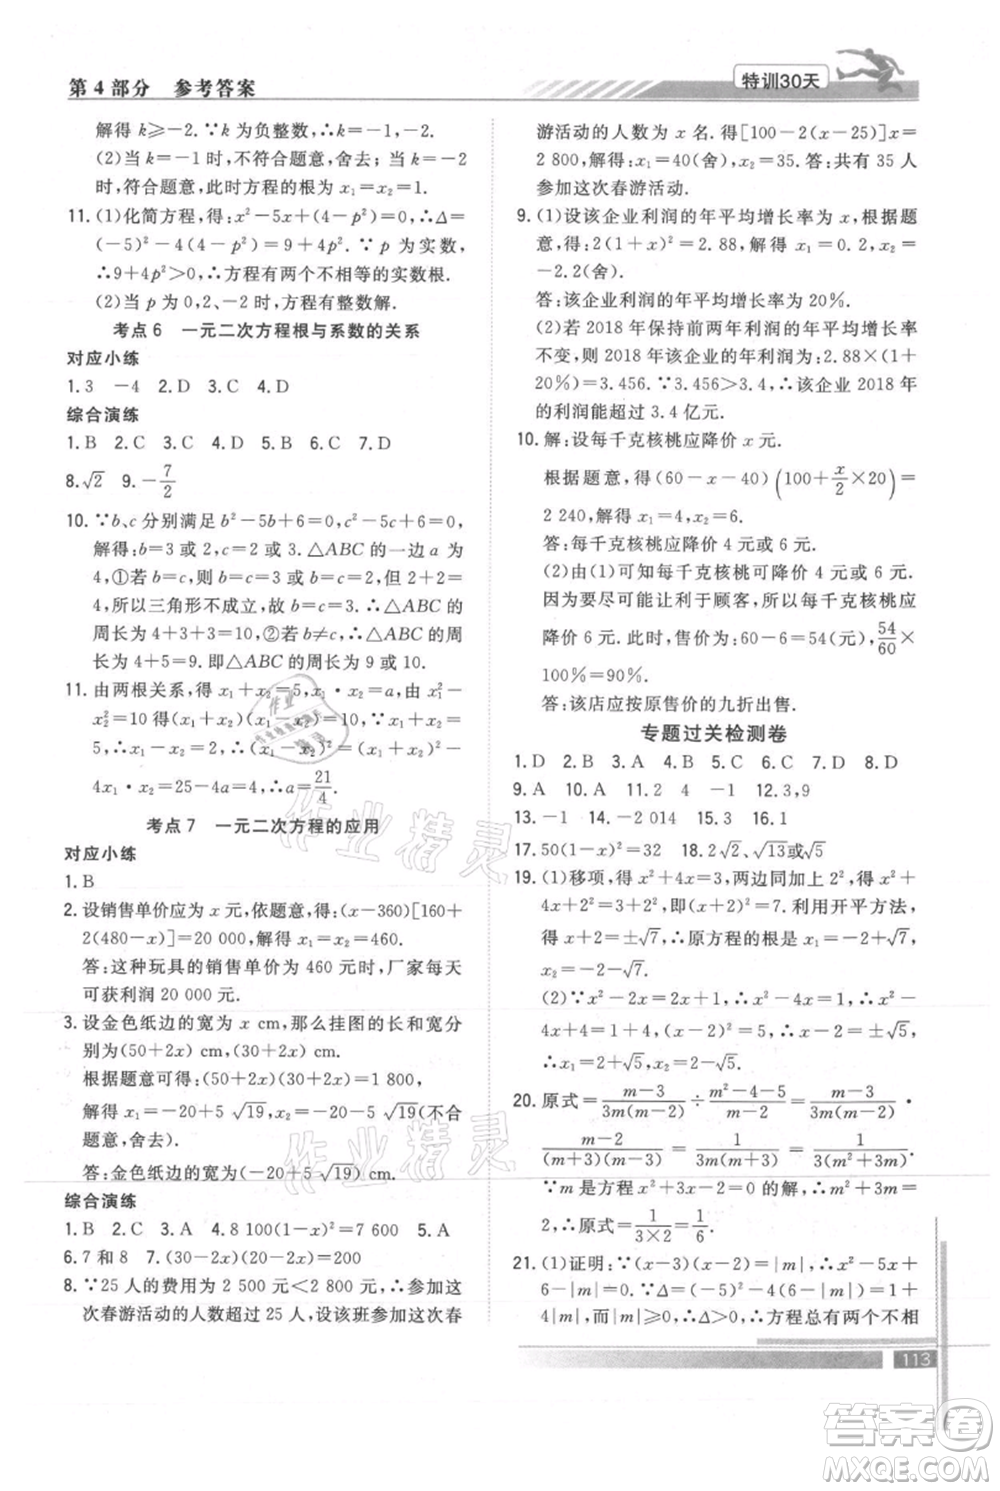 第4部分 参考答案
特训30天
解得 k≥-2.∵k 为负整数,∴k=-1,-2.
(2)当 k=-1 时,不符合题意,舍去;当 k=-2
时,符合题意,此时方程的根为 x₁=x₂=1.
11.(1)化简方程,得:x²-5x+(4-p²)=0,∴Δ=
(-5)²-4(4-p²)=9+4p².∵p 为实数,
∴9+4p²>0,∴方程有两个不相等的实数根.
(2)当 p 为0,2、-2 时,方程有整数解.
考点6 一元二次方程根与系数的关系
对应小练
1.3 -4 2.D 3.C 4.D
综合演练
1.B 2.C 3.D 4.D 5.B 6.C 7.D
8.√2 9.-7/2
10.∵b、c 分别满足 b²-5b+6=0,c²-5c+6=0,
解得:b=2或3,c=2或3.△ABC 的一边 a 为
4,①若 b=c,则 b=c=3或 b=c=2.但2+2=
4,所以三角形不成立,故 b=c=3.∴△ABC 的
周长为 4+3+3=10,②若b≠c,∴△ABC 的周
长为 4+5=9.即△ABC 的周长为 9 或 10.
11.由两根关系,得 x₁+x₂=5,x₁·x₂=a,由 x₁²-
x₂²=10 得(x₁+x₂)(x₁-x₂)=10,若 x₁+x₂=
5,∴x₁-x₂=2,∴(x₁-x₂)²=(x₁+x₂)²-
4x₁·x₂=25-4a=4,∴a=21/4.
考点7 一元二次方程的应用
对应小练
1.B
2.设销售单价应为 x 元,依题意,得:(x-360)[160+
2(480-x)]=20 000,解得 x=460.
答:这种玩具的销售单价为 460 元时,厂家每天
可获利润 20 000 元.
3.设金色纸边的宽为 x cm,那么挂图的长和宽分
别为(50+2x) cm,(30+2x) cm.
根据题意可得(50+2x)(30+2x)=1 800,
解得 x₁=-20+5√19,x₂=-20-5√19(不合
题意,舍去).
答:金色纸边的宽为(-20+5√19) cm.
综合演练
1.B 2.C 3.A 4.8 100(1-x)²=7 600 5.A
6.7 和 8 7.(30-2x)(20-x)=200
8.∵25 人的费用为 2 500 元<2 800 元,∴参加这
次春游活动的人数超过 25 人,设该班参加这次春
游活动的人数为 x 名.得[100-2(x-25)]x=
2 800,解得:x₁=40(舍),x₂=35.答:共有 35 人
参加这次春游活动.
9.(1)设该企业利润的年平均增长率为 x,根据题
意,得:2(1+x)²=2.88,解得 x₁=0.2,x₂=
-2.2(舍).
答:该企业利润的年平均增长率为 20%.
(2)若 2018 年保持前两年利润的年平均增长率
不变,则 2018 年该企业的年利润为:2.88×(1+
20%)=3.456.∵3.456>3.4,∴该企业 2018 年
的利润能超过 3.4 亿元.
10.解:设每千克核桃应降价 x 元.
根据题意,得(60-x-40)(100+x/2×20)=
2 240,解得 x₁=4,x₂=6.
答:每千克核桃应降价 4 元或 6 元.
(2)由(1)可知每千克核桃可降价 4 元或 6 元.
因为要尽可能让利于顾客,所以每千克核桃应
降价 6 元.此时,售价为:60-6=54(元),54/60×
100%=90%.
答:该店应按原售价的九折出售.
专题过关检测卷
1.D 2.B 3.A 4.D 5.C 6.C 7.D 8.D
9.A 10.A 11.2 4 -1 12.3,9
13.-1 14.-2 014 15.3 16.1
17.50(1-x)²=32 18.2√2、√13或√5
19.(1)移项,得 x²+4x=3,两边同加上 2²,得 x²+
4x+2²=3+2²,即(x+2)²=7.利用开平方法,
得 x+2=±√7,∴原方程的根为 x₁=-2+√7,
x₂=-2-√7.
(2)∵x²-2x=2x+1,∴x²-4x=1,∴x²-
4x+4=1+4,(x-2)²=5,∴x-2=±√5,
∴x₁=2+√5,x₂=2-√5.
20.原式=m-3/3m(m-2)÷m²-4-5/m-2=m-3/3m(m-2)·
m-2/(m+3)(m-3)=1/3m(m+3)=1/3(m²+3m).
∵m 是方程 x²+3x-2=0 的解,∴m²+3m=
2,∴原式=1/3×2=1/6.
21.(1)证明:∵(x-3)(x-2)=|m|,∴x²-5x+
6-|m|=0,∵Δ=(-5)²-4(6-|m|)=1+
4|m|,而|m|≥0,∴Δ>0,∴方程总有两个不相
113
作业精灵
作业精灵
作业
精灵
答案圈
MXQE.COM